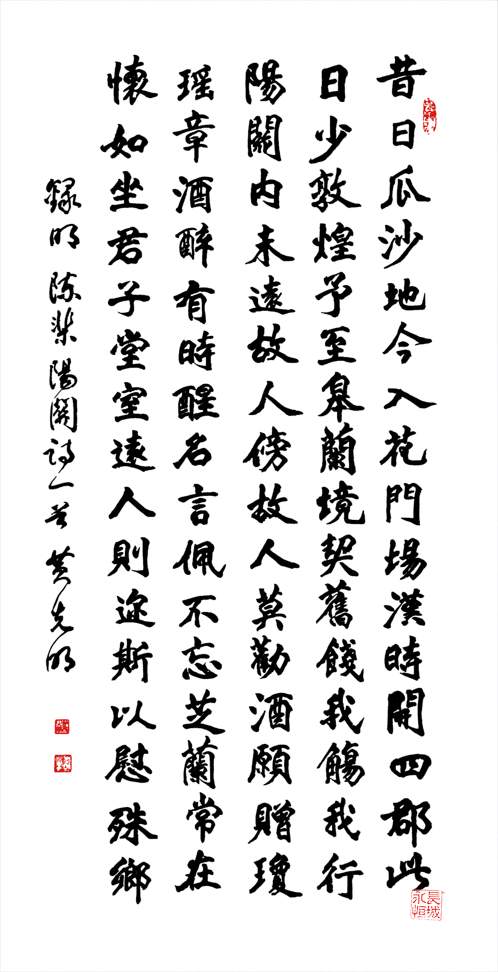 昔日瓜沙地今入花門場漢時開四郡此
日少敦煌予至皋蘭境契舊餞我觴我行
陽關内未遠故人傍故人莫勸酒願贈瓊
瑶章酒醉有時醒名言佩不忘芝蘭常在
懷如坐君子堂室遠人則迩斯以慰殊鄉
録明陳棐陽關詩一首 黄先明
長城永恒